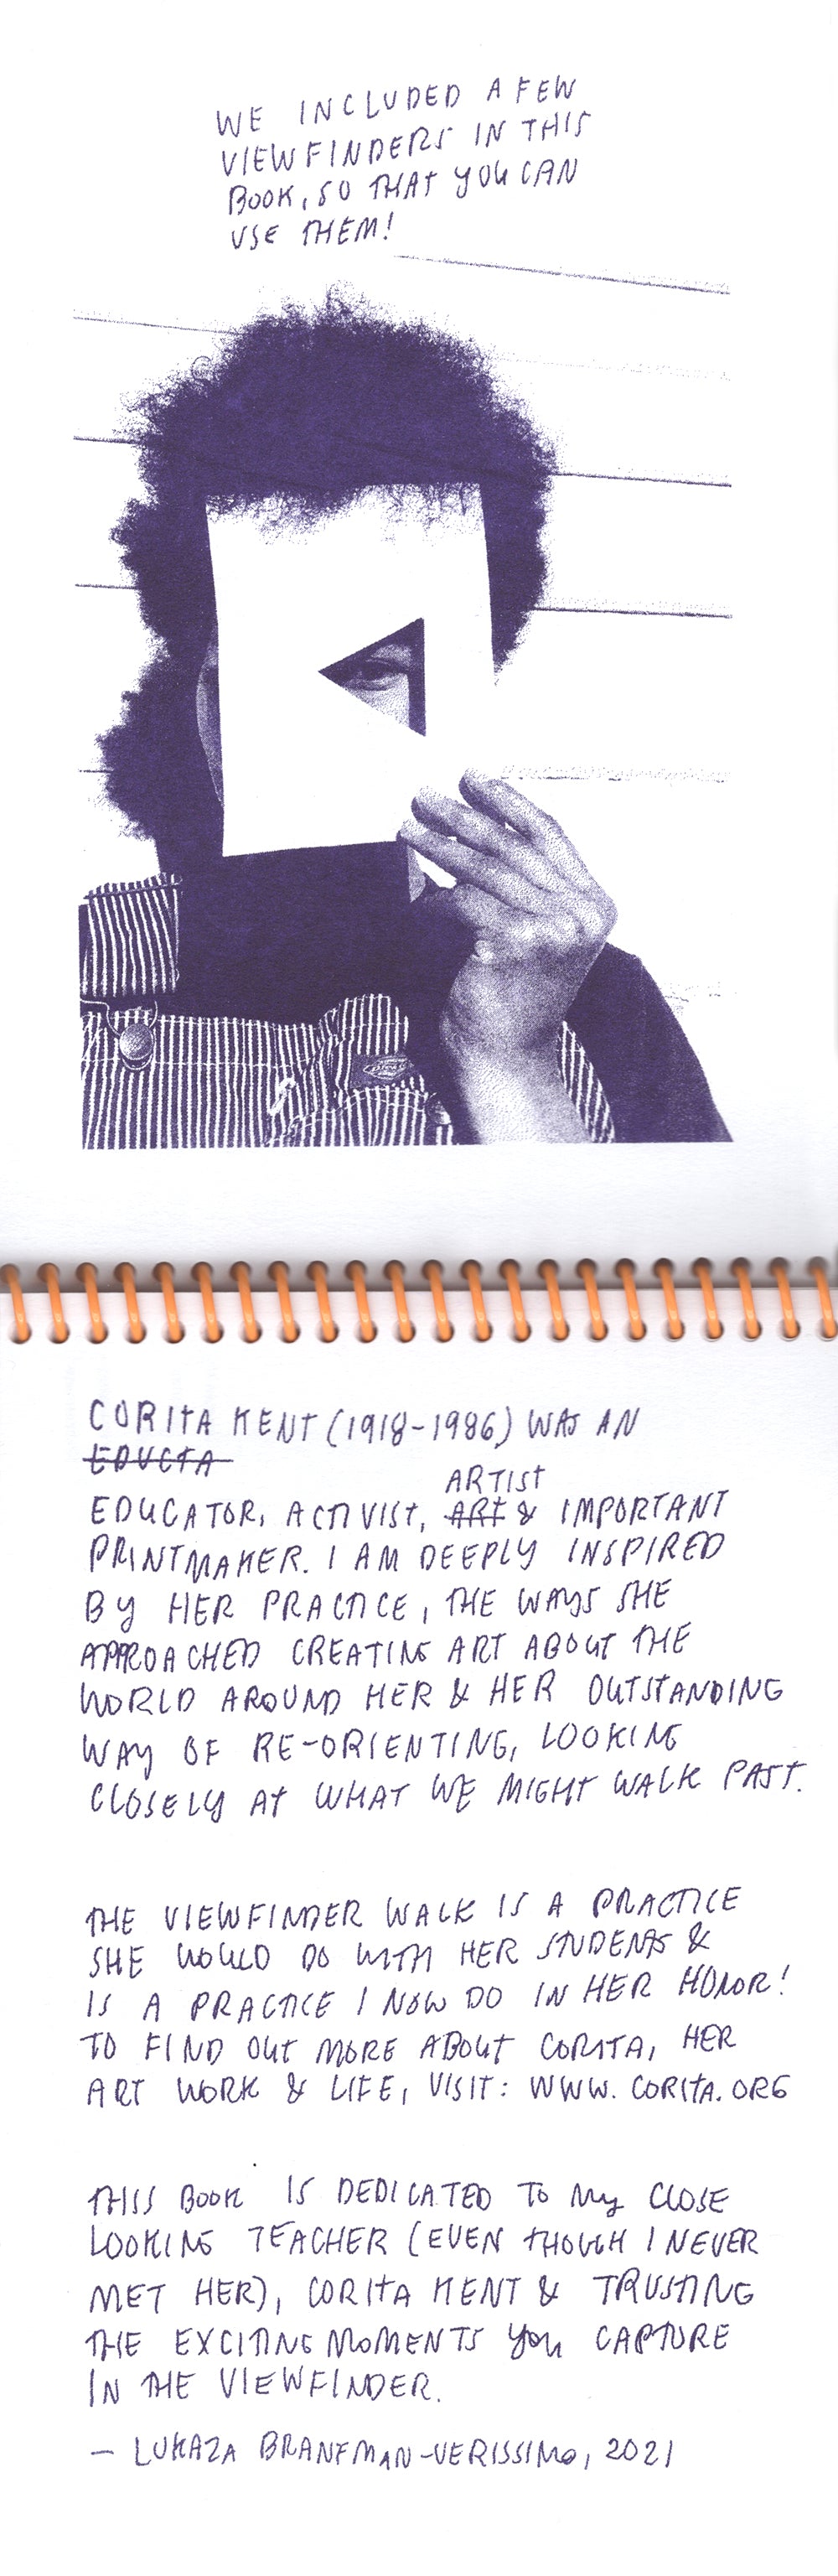 WE INCLUDED A FEW
VIEWFINDERS IN THIS
BOOK, SO THAT YOU CAN
USE THEM!
Dickies
CORITA KENT (1918-1986) WAS AN
EDUCTA
ARTIST
EDUCATOR, ACTIVIST, ART & IMPORTANT
PRINTMAKER. I AM DEEPLY INSPIRED
BY HER PRACTICE, THE WAYS SHE
APPROACHED CREATING ART ABOUT THE
WORLD AROUND HER & HER OUTSTANDING
WAY OF RE-ORIENTING, LOOKING
CLOSELY AT WHAT WE MIGHT WALK PAST.
THE VIEWFINDER WALK IS A PRACTICE
SHE WOULD DO WITH HER STUDENTS &
IS A PRACTICE I NOW DO IN HER HONOR!
TO FIND OUT MORE ABOUT CORITA, HER
ART WORK & LIFE, VISIT: WWW.CORITA.ORG
THIS BOOK IS DEDICATED TO MY CLOSE
LOOKING TEACHER (EVEN THOUGH I NEVER
MET HER), CORITA KENT & TRUSTING
THE EXCITING MOMENTS YOU CAPTURE
IN THE VIEWFINDER.
— LUKAZA BRANFMAN-VERISSIMO, 2021